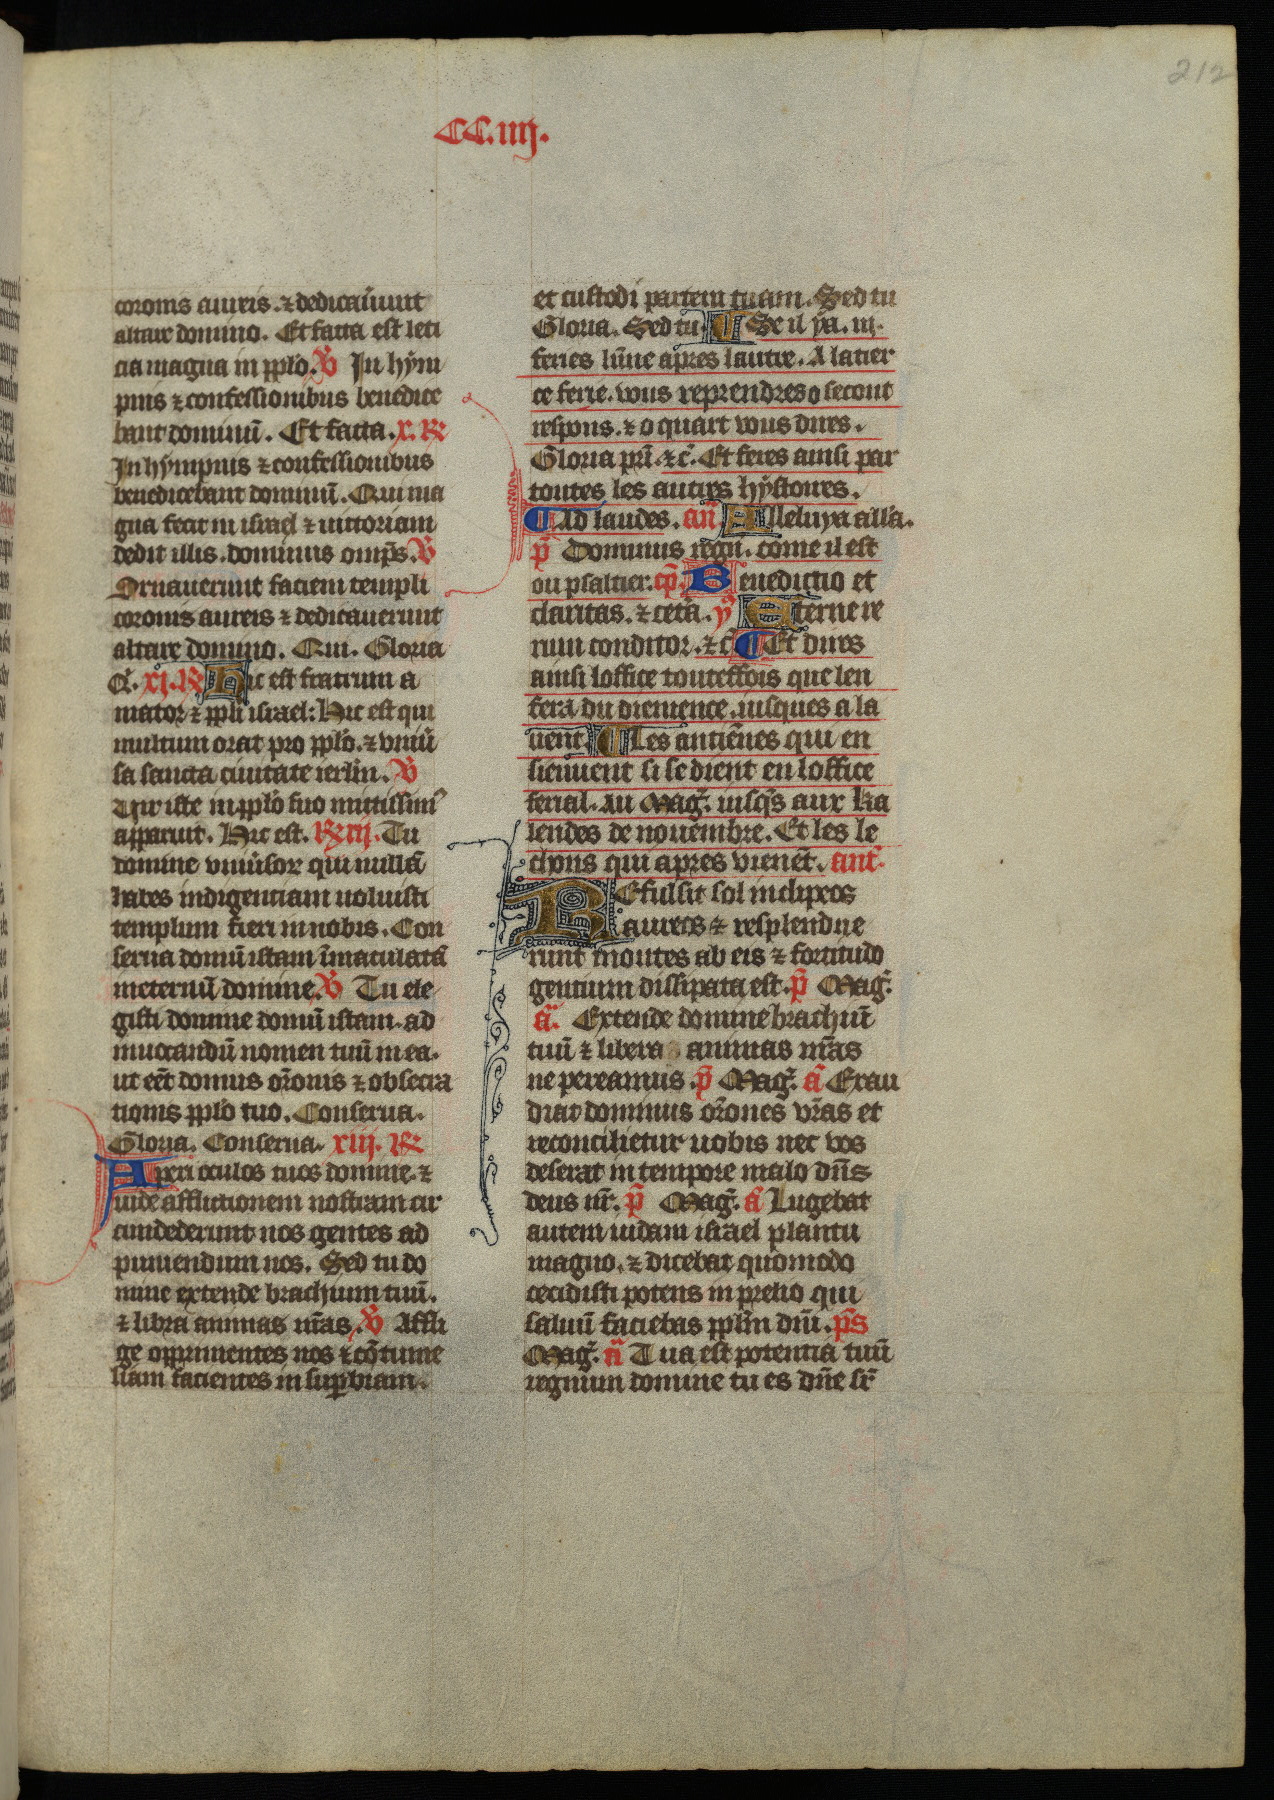 212
CC.iiij.
coronis aureis. ⁊ dedicauerunt
altare domino. Et facta est leti
cia magna in pplo. V̄ In hẏm
pnis ⁊ confessionibus benedice
bant dominū. Et facta. x. R̄
In hẏmpnis ⁊ confessionibus
benedicebant dominū. Qui ma
gna fecit in israel ⁊ uictoriam
dedit illis. dominus omp̄s. V̄
Ornauerunt faciem templi
coronis aureis ⁊ dedicauerunt
altare domino. Qui. Gloria
Q̄. xj. R̄ Hic est fratrum a
mator ⁊ ppli israel: Hic est qui
multum orat pro pplo. ⁊ vniu̾
sa sancta ciuitate ierlm̄. V̄
Vir iste in pplo suo mitissim᷒
apparuit. Hic est. R̄ xij. Tu
domine vniu̾sor qui nullā
habes indigentiam uoluisti
templum fieri in nobis. Con
serua domū istam īmaculatā
ineternū domine. V̄ Tu ele
gisti domine domū istam. ad
inuocandū nomen tuū in ea.
ut eēt domus or̄onis ⁊ obsecra
tionis pplo tuo. Conserua.
Gloria. Conserua. xiij. R̄
Aperi oculos tuos domine. ⁊
uide afflictionem nostram cir
cumdederunt nos gentes ad
puniendum nos. Sed tu do
mine extende brachium tuū.
⁊ libra animas nr̄as. V̄ Affli
ge opprimentes nos ⁊ cōtume
liam facientes in sup̱biam.
et custodi partem tuam. Sed tu
Gloria. Sed tu. ¶ Se il ẏa. iij.
feries lūne apres lautre. A la tier
ce ferie. vous reprendres o secont
respons. ⁊ o quart vous dires.
Gloria pri̾. ⁊c̾. Et feres ainsi par
toutes les autres hẏstoires.
¶ Ad laudes. an̄ Alleluya all̄a.
p̄ Dominus regn̾. come il est
ou psaltier. cp̄. Benedictio et
claritas. ⁊ cetā. ẏ᷒ Eterne re
rum conditor. ⁊c̾ ¶ Et dires
ainsi loffice touteffois que len
fera du diemence. iusques a la
uent. ¶ Les antiēnes qui en
sieuuent si se dient en loffice
ferial. Au Mag̾. iusq̄s aux ka
lendes de nouembre. Et les le
chons qui apres vienēt. ant̾.
Refulsit sol in clipeos
aureos ⁊ resplendue
runt montes ab eis ⁊ fortitudo
gentium dissipata est. p̄ Mag̾.
a̾. Extende domine brachiū
tuū ⁊ libera animas nr̄as
ne pereamus. p̄ Mag̾. a̾ Exau
diat dominus or̄ones vr̄as et
reconcilietur uobis nec vos
deserat in tempore malo dn̄s
deus nr̄. p̄ Mag̾. a̾ Lugebat
autem iudam israel planctu
magno. ⁊ dicebat quomodo
cecidisti potens in prelio qui
saluū faciebas pplm̄ dn̄i. p̄s
Mag̾. a̾ Tua est potentia tuū
regnum domine tu es dn̄e sr̄